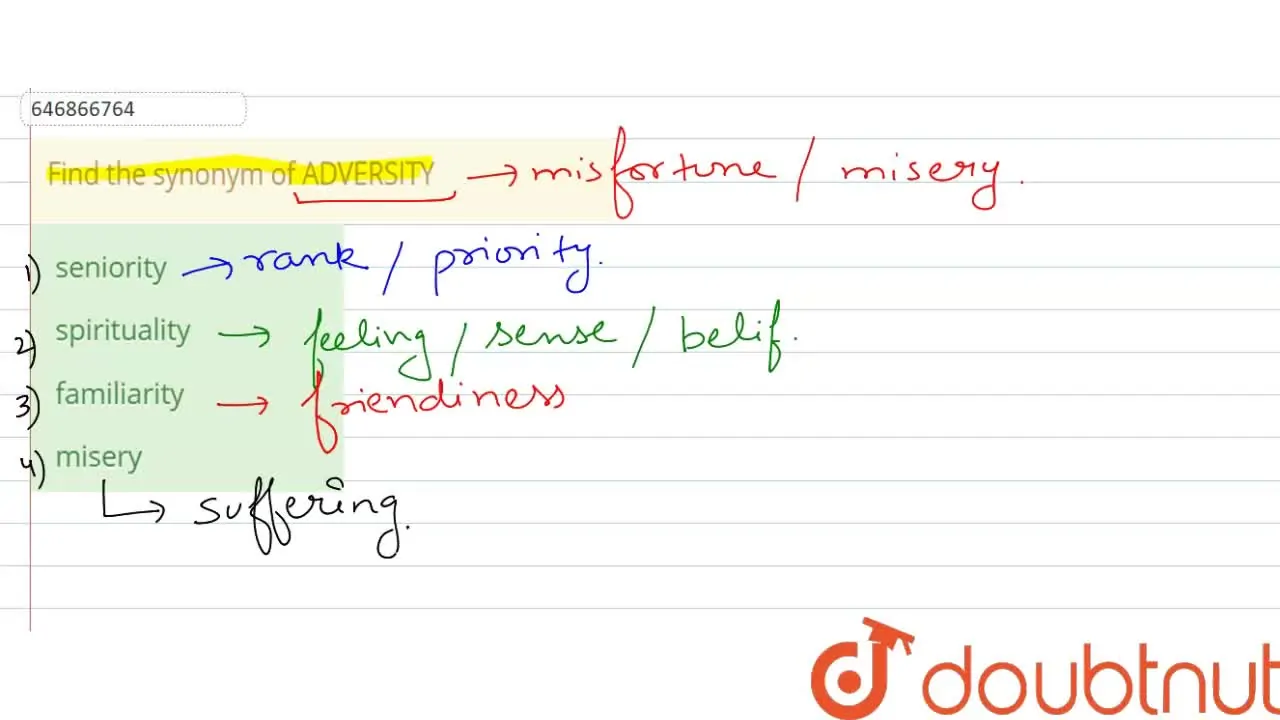 646866764
Find the synonym of ADVERSITY → misfortune / misery.
1) seniority → rank / priority.
2) spirituality → feeling / sense / belif.
3) familiarity → friendiness
4) misery
↳ suffering.
doubtnut